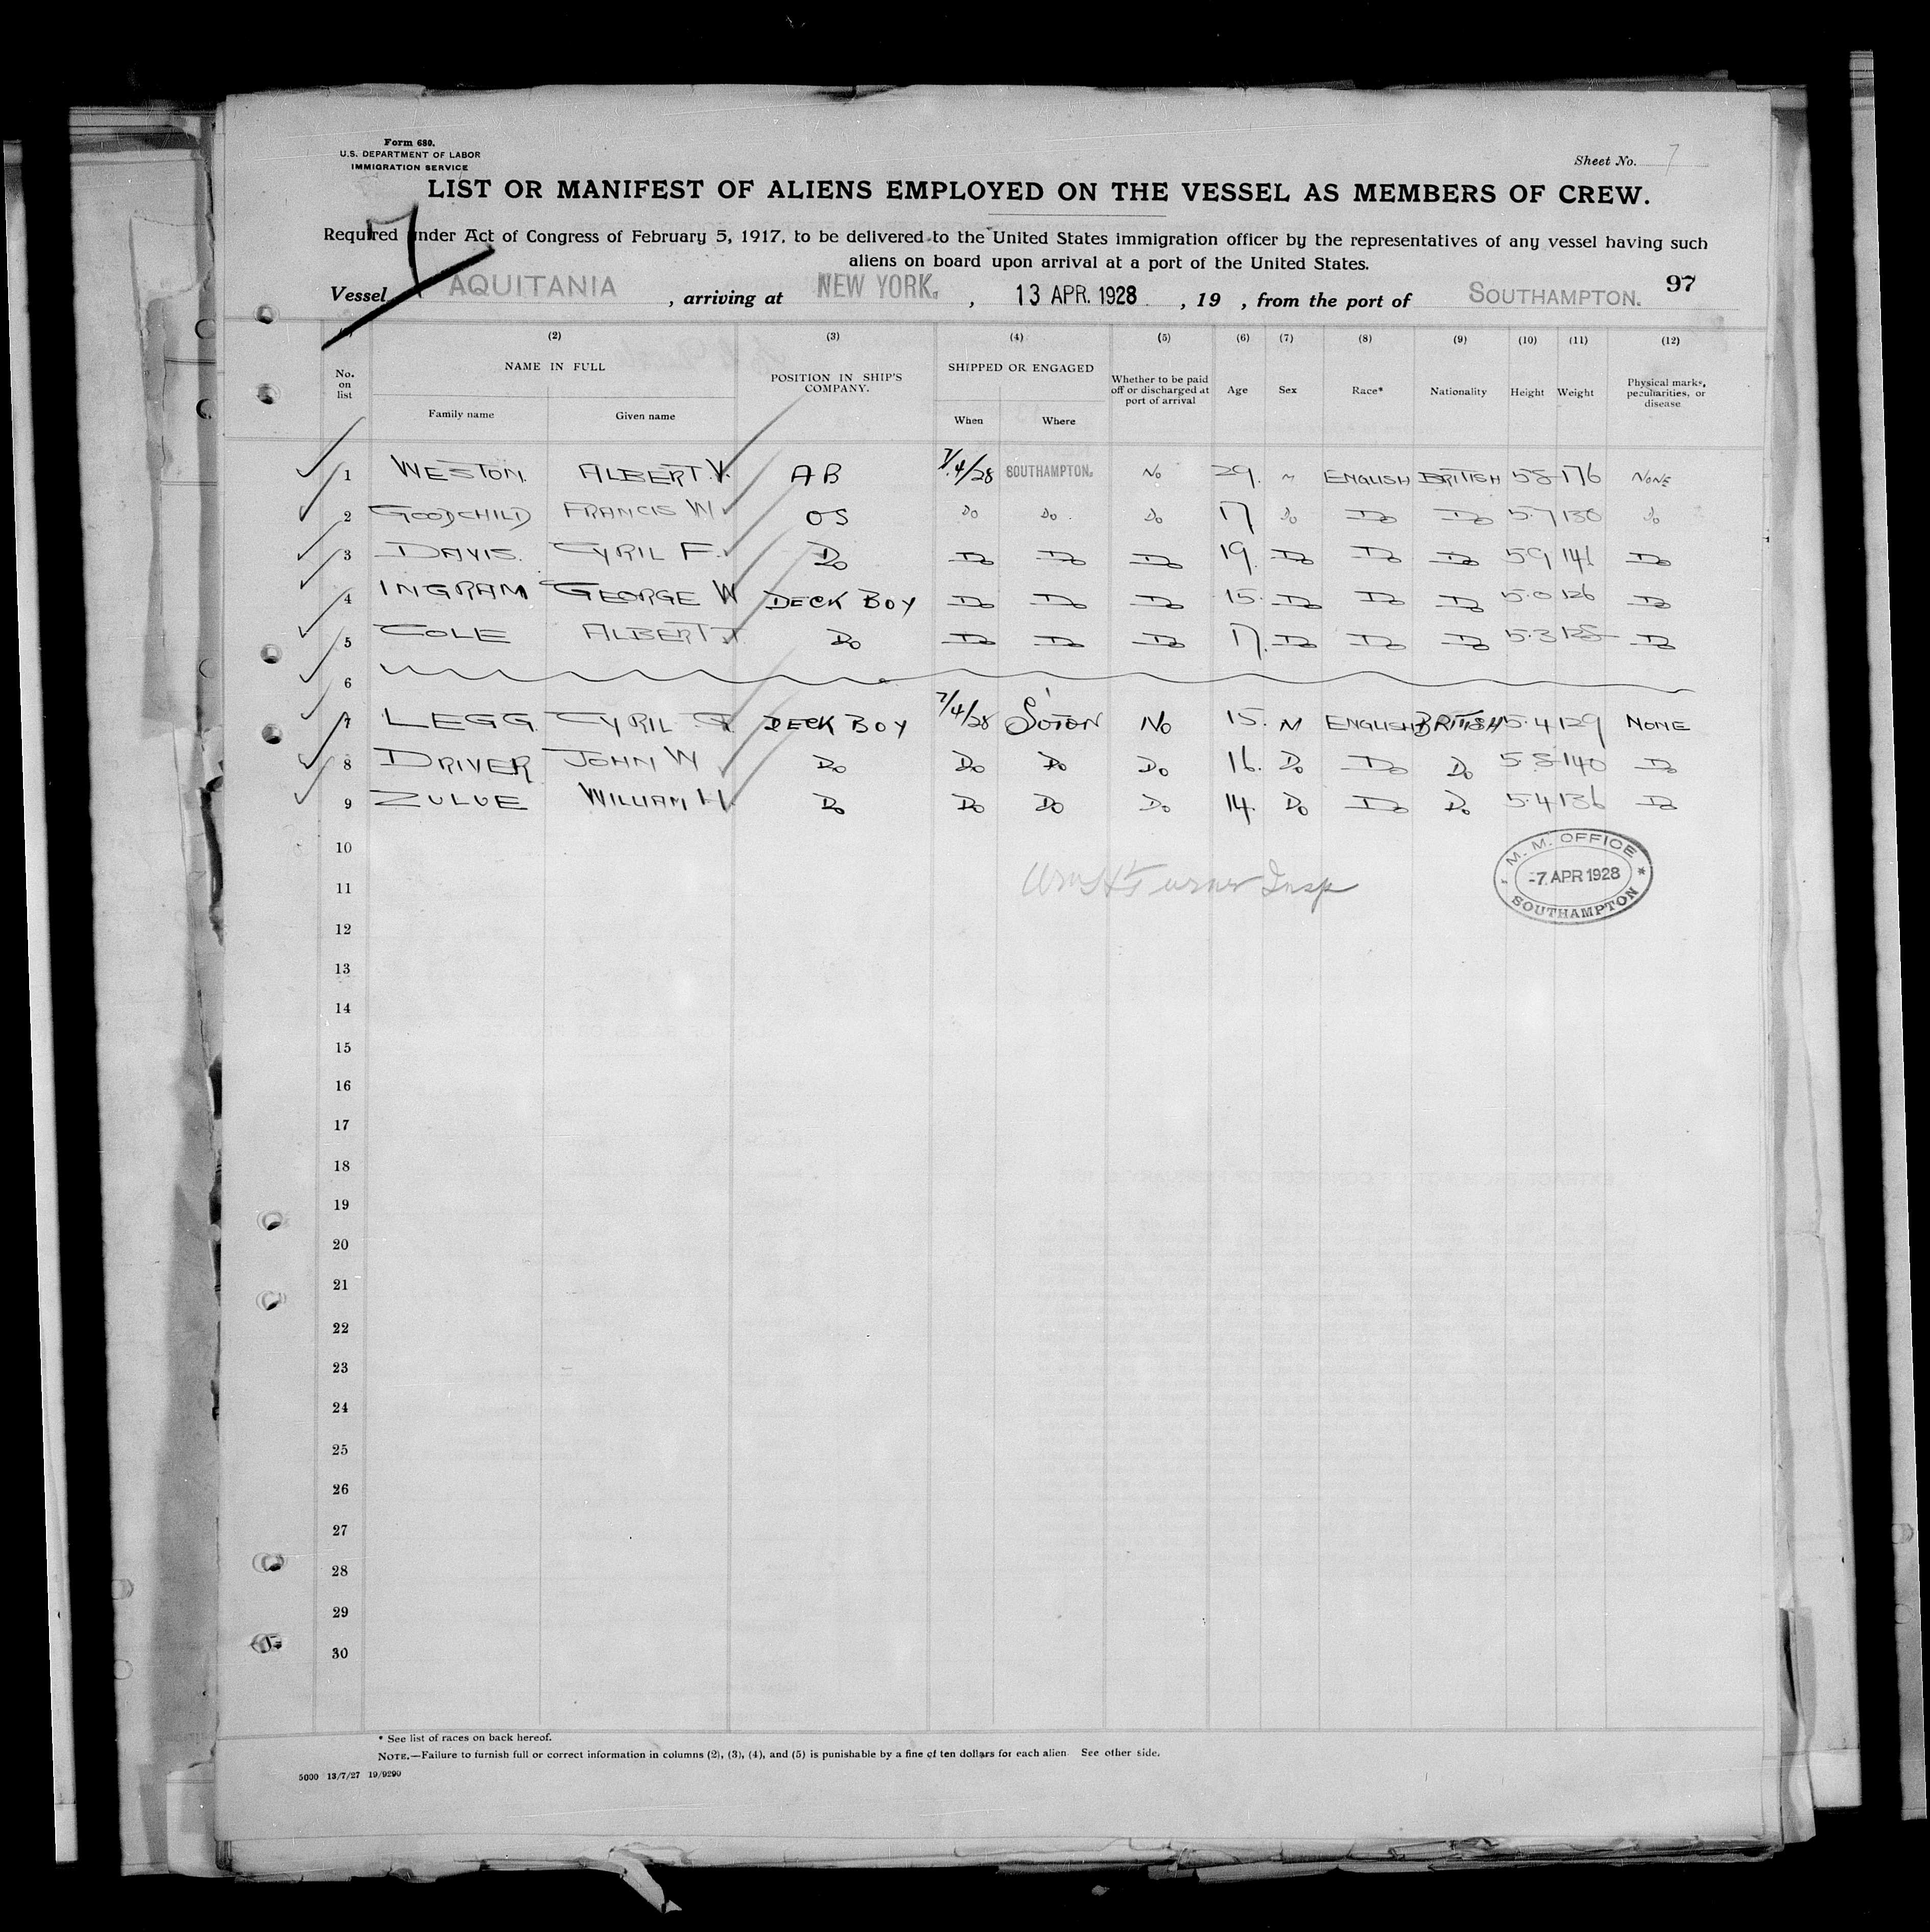 Form 680.
U.S. DEPARTMENT OF LABOR
IMMIGRATION SERVICE
Sheet No. 7
LIST OR MANIFEST OF ALIENS EMPLOYED ON THE VESSEL AS MEMBERS OF CREW.
Required under Act of Congress of February 5, 1917, to be delivered to the United States immigration officer by the representatives of any vessel having such
aliens on board upon arrival at a port of the United States.
97
Vessel AQUITANIA, arriving at NEW YORK., 13 APR. 1928, 19 , from the port of SOUTHAMPTON.
(2) (3) (4) (5) (6) (7) (8) (9) (10) (11) (12)
No. on list NAME IN FULL Family name Given name POSITION IN SHIP'S COMPANY. SHIPPED OR ENGAGED When Where Whether to be paid off or discharged at port of arrival Age Sex Race* Nationality Height Weight Physical marks, peculiarities, or disease
1 WESTON. ALBERT.V. AB 7/4/28 SOUTHAMPTON. No 29. M ENGLISH BRITISH 58 176 NONE
2 GOODCHILD FRANCIS W OS Do Do Do 17 Do Do Do 5.7 138 Do
3 DAVIS. CYRIL F. Do Do Do Do 19. Do Do Do 59 141 Do
4 INGRAM GEORGE W DECK BOY Do Do Do 15. Do Do Do 5.0 126 Do
5 COLE ALBERT J. Do Do Do Do 17. Do Do Do 5.3 Do
6
7 LEGG. CYRIL DECK BOY 7/4/28 S'OTON No 15. M ENGLISH BRITISH 5.4 129 NONE
8 DRIVER JOHN W Do Do Do Do 16. Do Do Do 5.8 140 Do
9 ZULUE WILLIAM H. Do Do Do Do 14. Do Do Do 5.4 136 Do
10
M. M. OFFICE
-7 APR 1928
SOUTHAMPTON
11 Wm H Turner Insp
12
13
14
15
16
17
18
19
20
21
22
23
24
25
26
27
28
29
30
* See list of races on back hereof.
NOTE.—Failure to furnish full or correct information in columns (2), (3), (4), and (5) is punishable by a fine of ten dollars for each alien See other side.
5000 13/7/27 19/9290